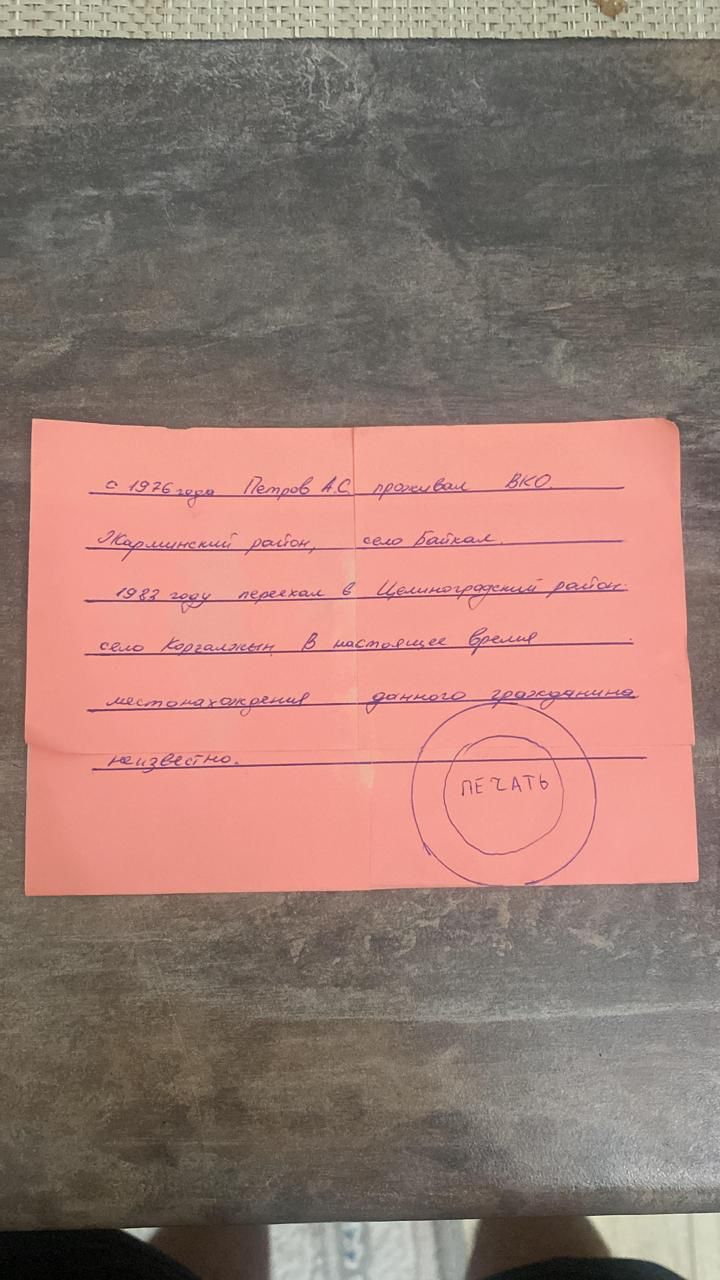 с 1976 года Петров А.С. проживал ВКО.
Жарминский район, село Байкал.
1982 году переехал в Целиноградский район.
село Коргалжын. В настоящее время
местонахождения данного гражданина
неизвестно.
ПЕЧАТЬ